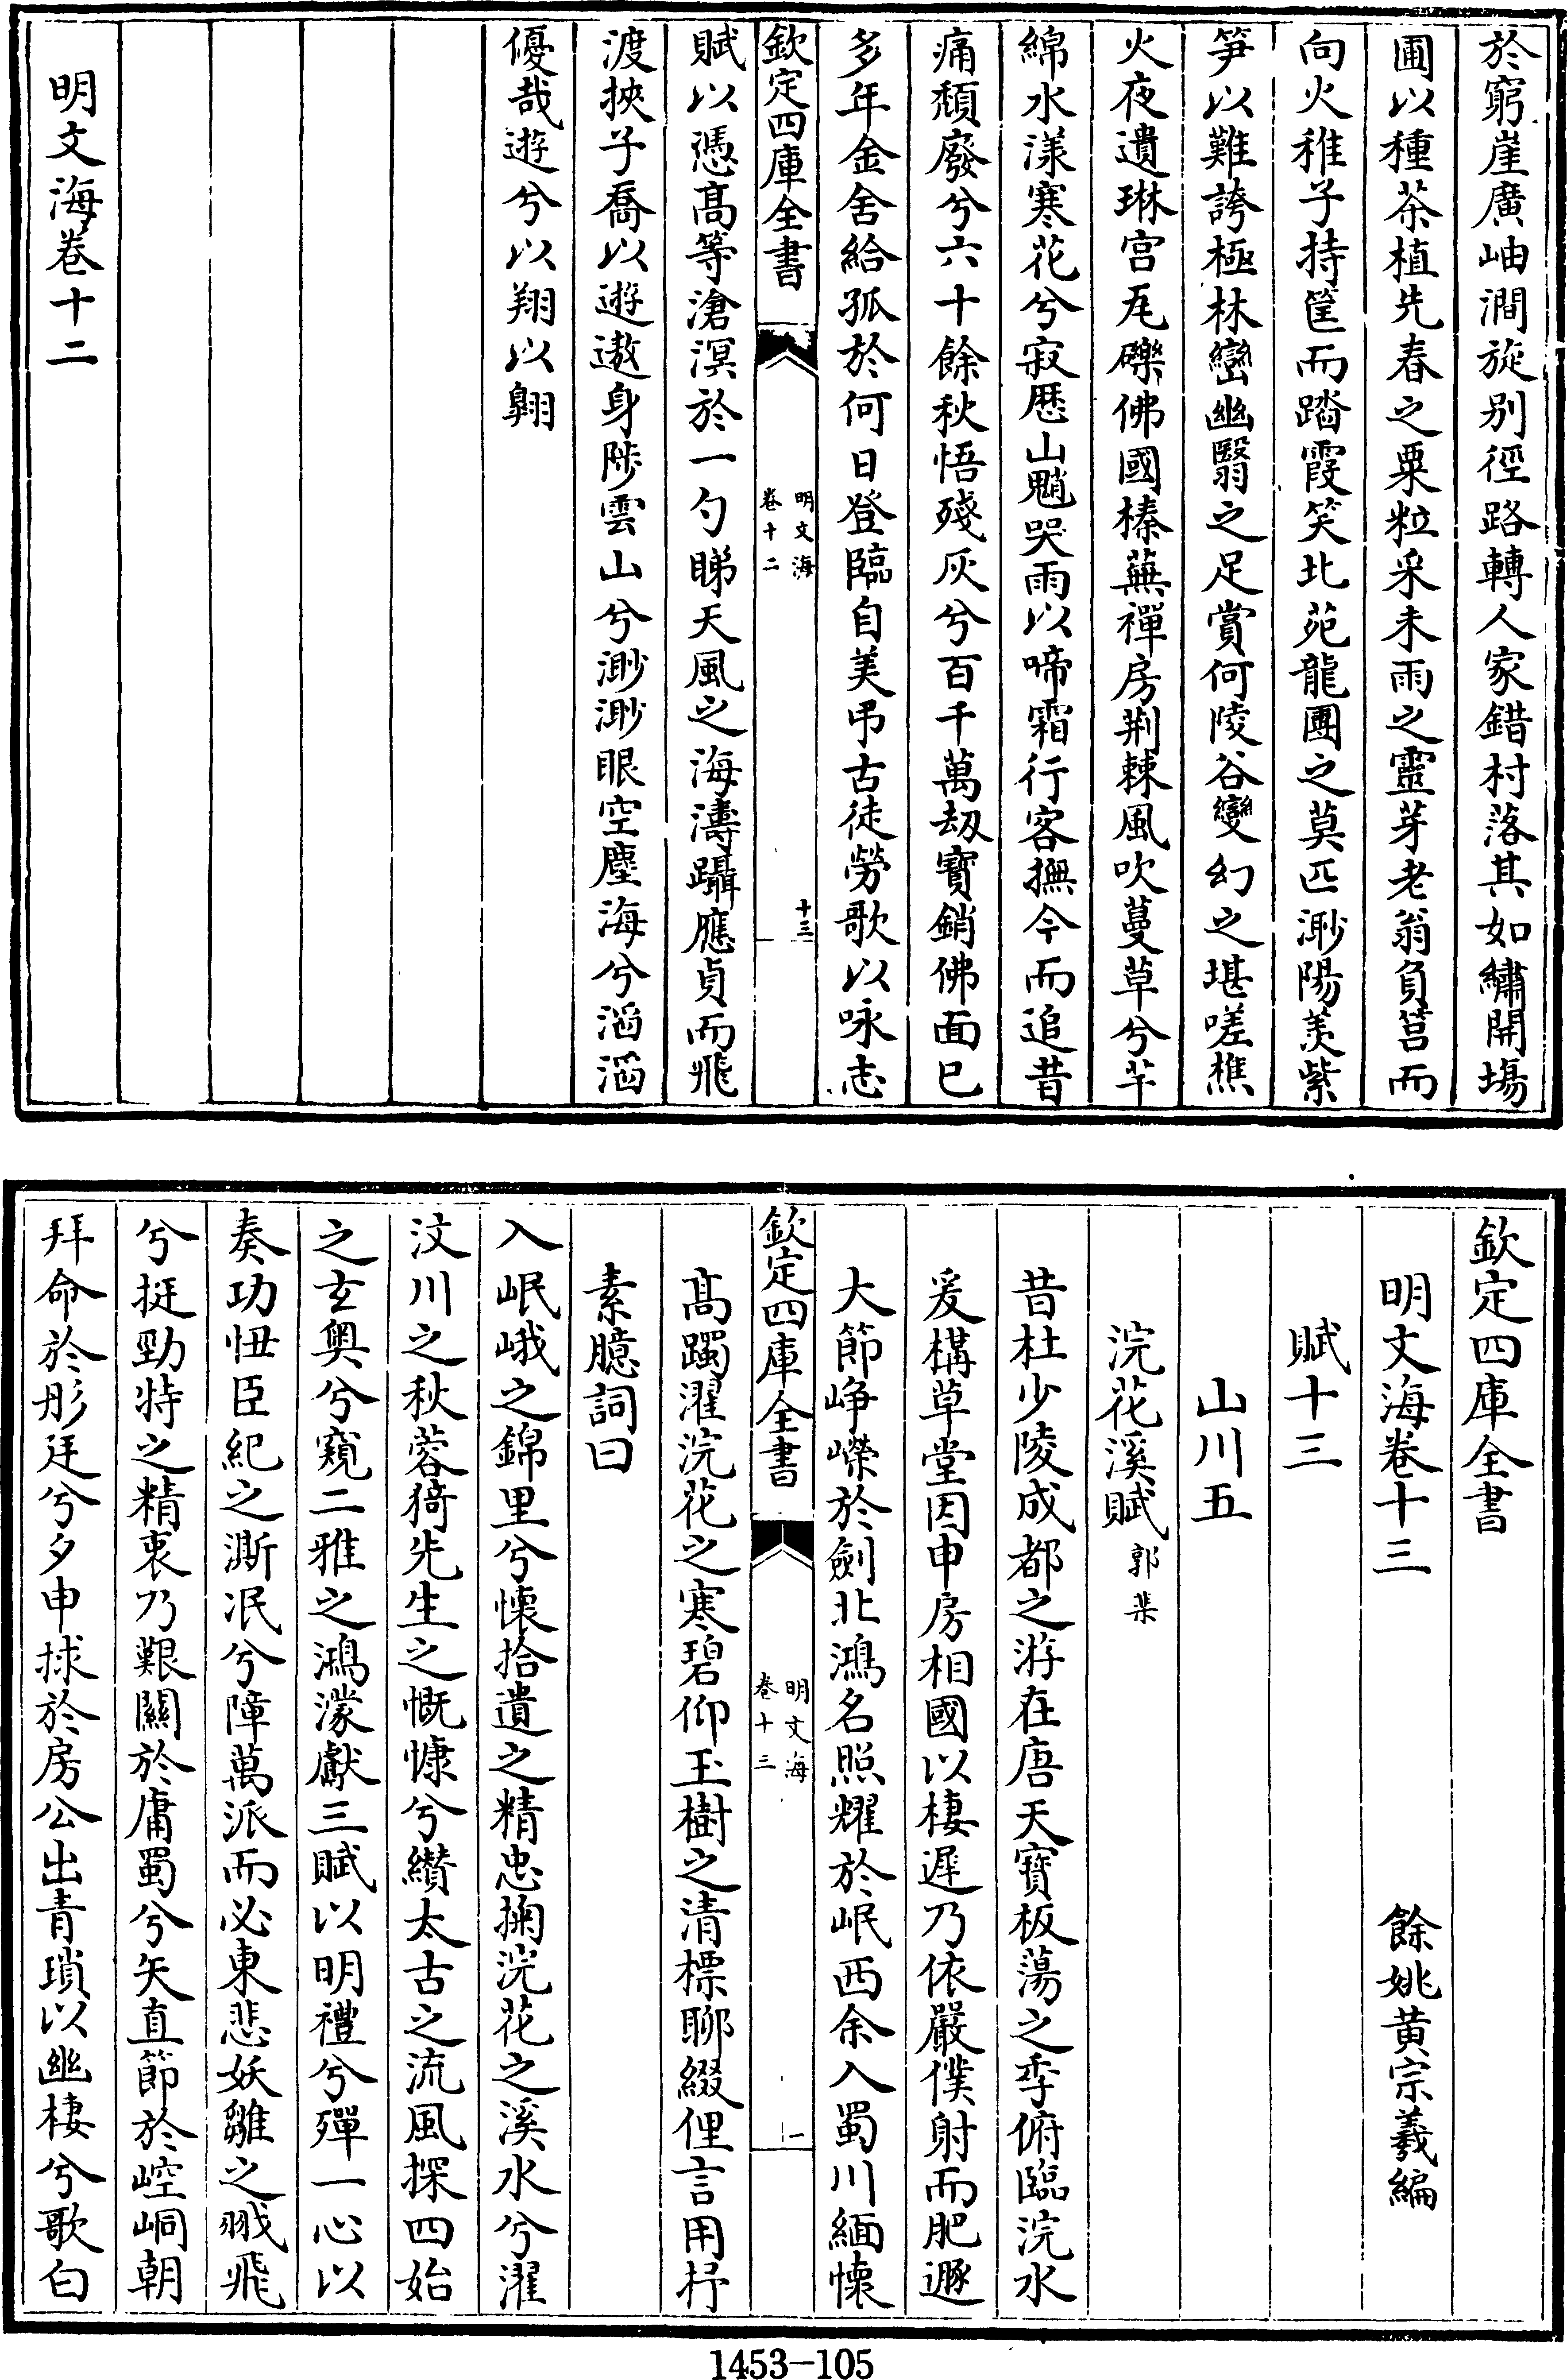 於窮崖廣岫澗旋别徑路轉人家錯村落其如繡開場
圃以種茶植先春之粟粒采未雨之靈芽老翁負筥而
向火稚子持筐而踏霞笑北苑龍團之莫匹渺陽羨紫
笋以難誇極林巒幽翳之足賞何陵谷變幻之堪嗟樵
火夜遺琳宫瓦礫佛國榛蕪禪房荆棘風吹蔓草兮芊
綿水漾寒花兮寂歴山魈哭雨以啼霜行客撫今而追昔
痛頽廢兮六十餘秋悟殘灰兮百千萬刼寳銷佛面已
多年金舍給孤於何日登臨自美弔古徒勞歌以咏志
欽定四庫全書
明文海
卷十二
十三
賦以憑髙等滄溟於一勺睇天風之海濤躡應貞而飛
渡挾子喬以遊遨身陟雲山兮渺渺眼空塵海兮滔滔
優哉遊兮以翔以翺
明文海卷十二
欽定四庫全書
明文海卷十三
餘姚黄宗羲編
賦十三
山川五
浣花溪賦 郭棐
昔杜少陵成都之游在唐天寳板蕩之季俯臨浣水
爰構草堂因申房相國以棲遲乃依嚴僕射而肥遯
大節峥嶸於劍北鴻名照耀於岷西余入蜀川緬懷
欽定四庫全書
明文海
卷十三
一
髙躅濯浣花之寒碧仰玉樹之清標聊綴俚言用抒
素臆詞曰
入岷峨之錦里兮懷拾遺之精忠掬浣花之溪水兮濯
汶川之秋蓉猗先生之慨慷兮纘太古之流風探四始
之玄奥兮窺二雅之鴻濛獻三賦以明禮兮殫一心以
奏功忸臣紀之澌泯兮障萬派而必東悲妖雛之戕飛
兮挺勁特之精衷乃艱關於庸蜀兮矢直節於崆峒朝
拜命於彤廷兮夕申捄於房公出青瑣以幽棲兮歌白
1453-105